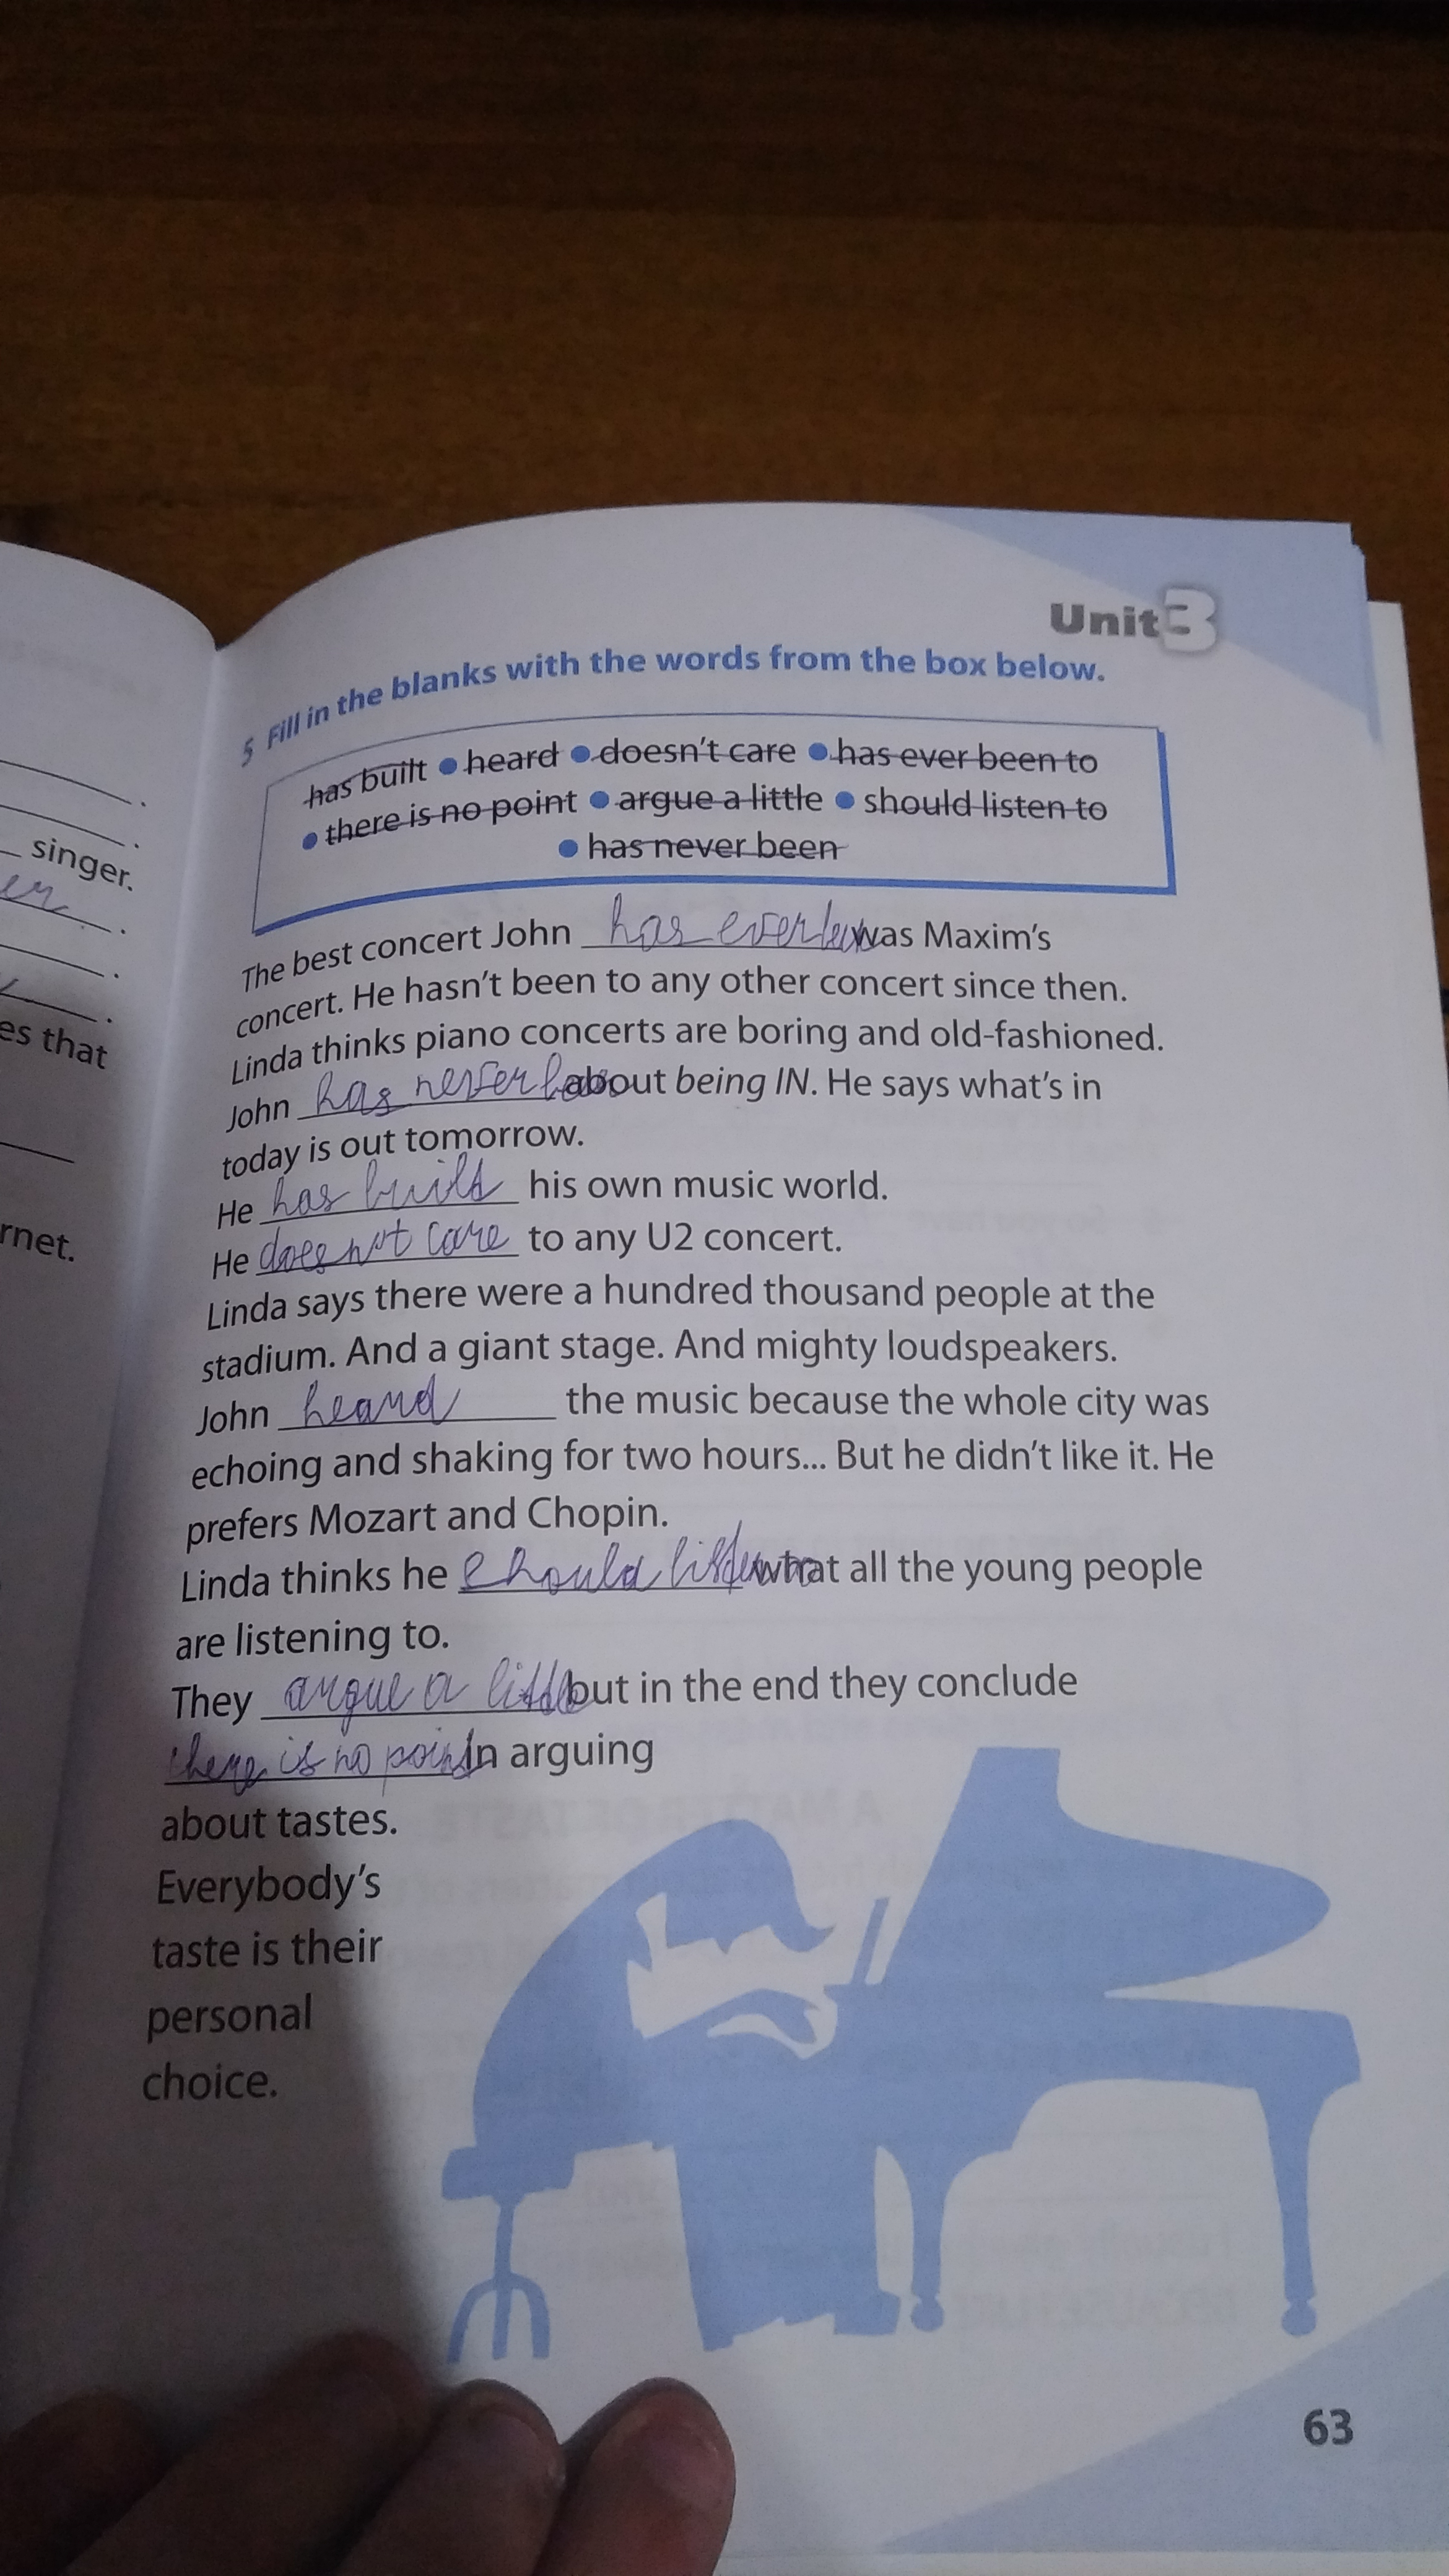 Unit 3
5 Fill in the blanks with the words from the box below.
has built • heard • doesn't care • has ever been to
• there is no point • argue a little • should listen to
• has never been
The best concert John has ever been was Maxim's
concert. He hasn't been to any other concert since then.
Linda thinks piano concerts are boring and old-fashioned.
John has never about being IN. He says what's in
today is out tomorrow.
He has built his own music world.
He does not care to any U2 concert.
Linda says there were a hundred thousand people at the
stadium. And a giant stage. And mighty loudspeakers.
John heard the music because the whole city was
echoing and shaking for two hours... But he didn't like it. He
prefers Mozart and Chopin.
Linda thinks he should listen what all the young people
are listening to.
They argue a little but in the end they conclude
there is no point in arguing
about tastes.
Everybody's
taste is their
personal
choice.
63
singer.
er
es that
rnet.